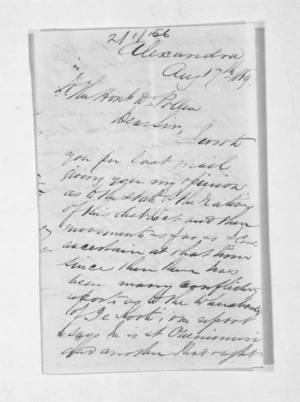 Alexandra
Aug 17th /69
To The Honble Dr Pollen
Dear Sir,
I wrote
you per last mail
giving you my opinion
as to the state of the Natives
of this district and their
movements as far as I could
ascertain at that time
since then there has
been many conflicting
reports as to the whereabouts
of Te Kooti, one report
says he is at Ohinemuri
and another that